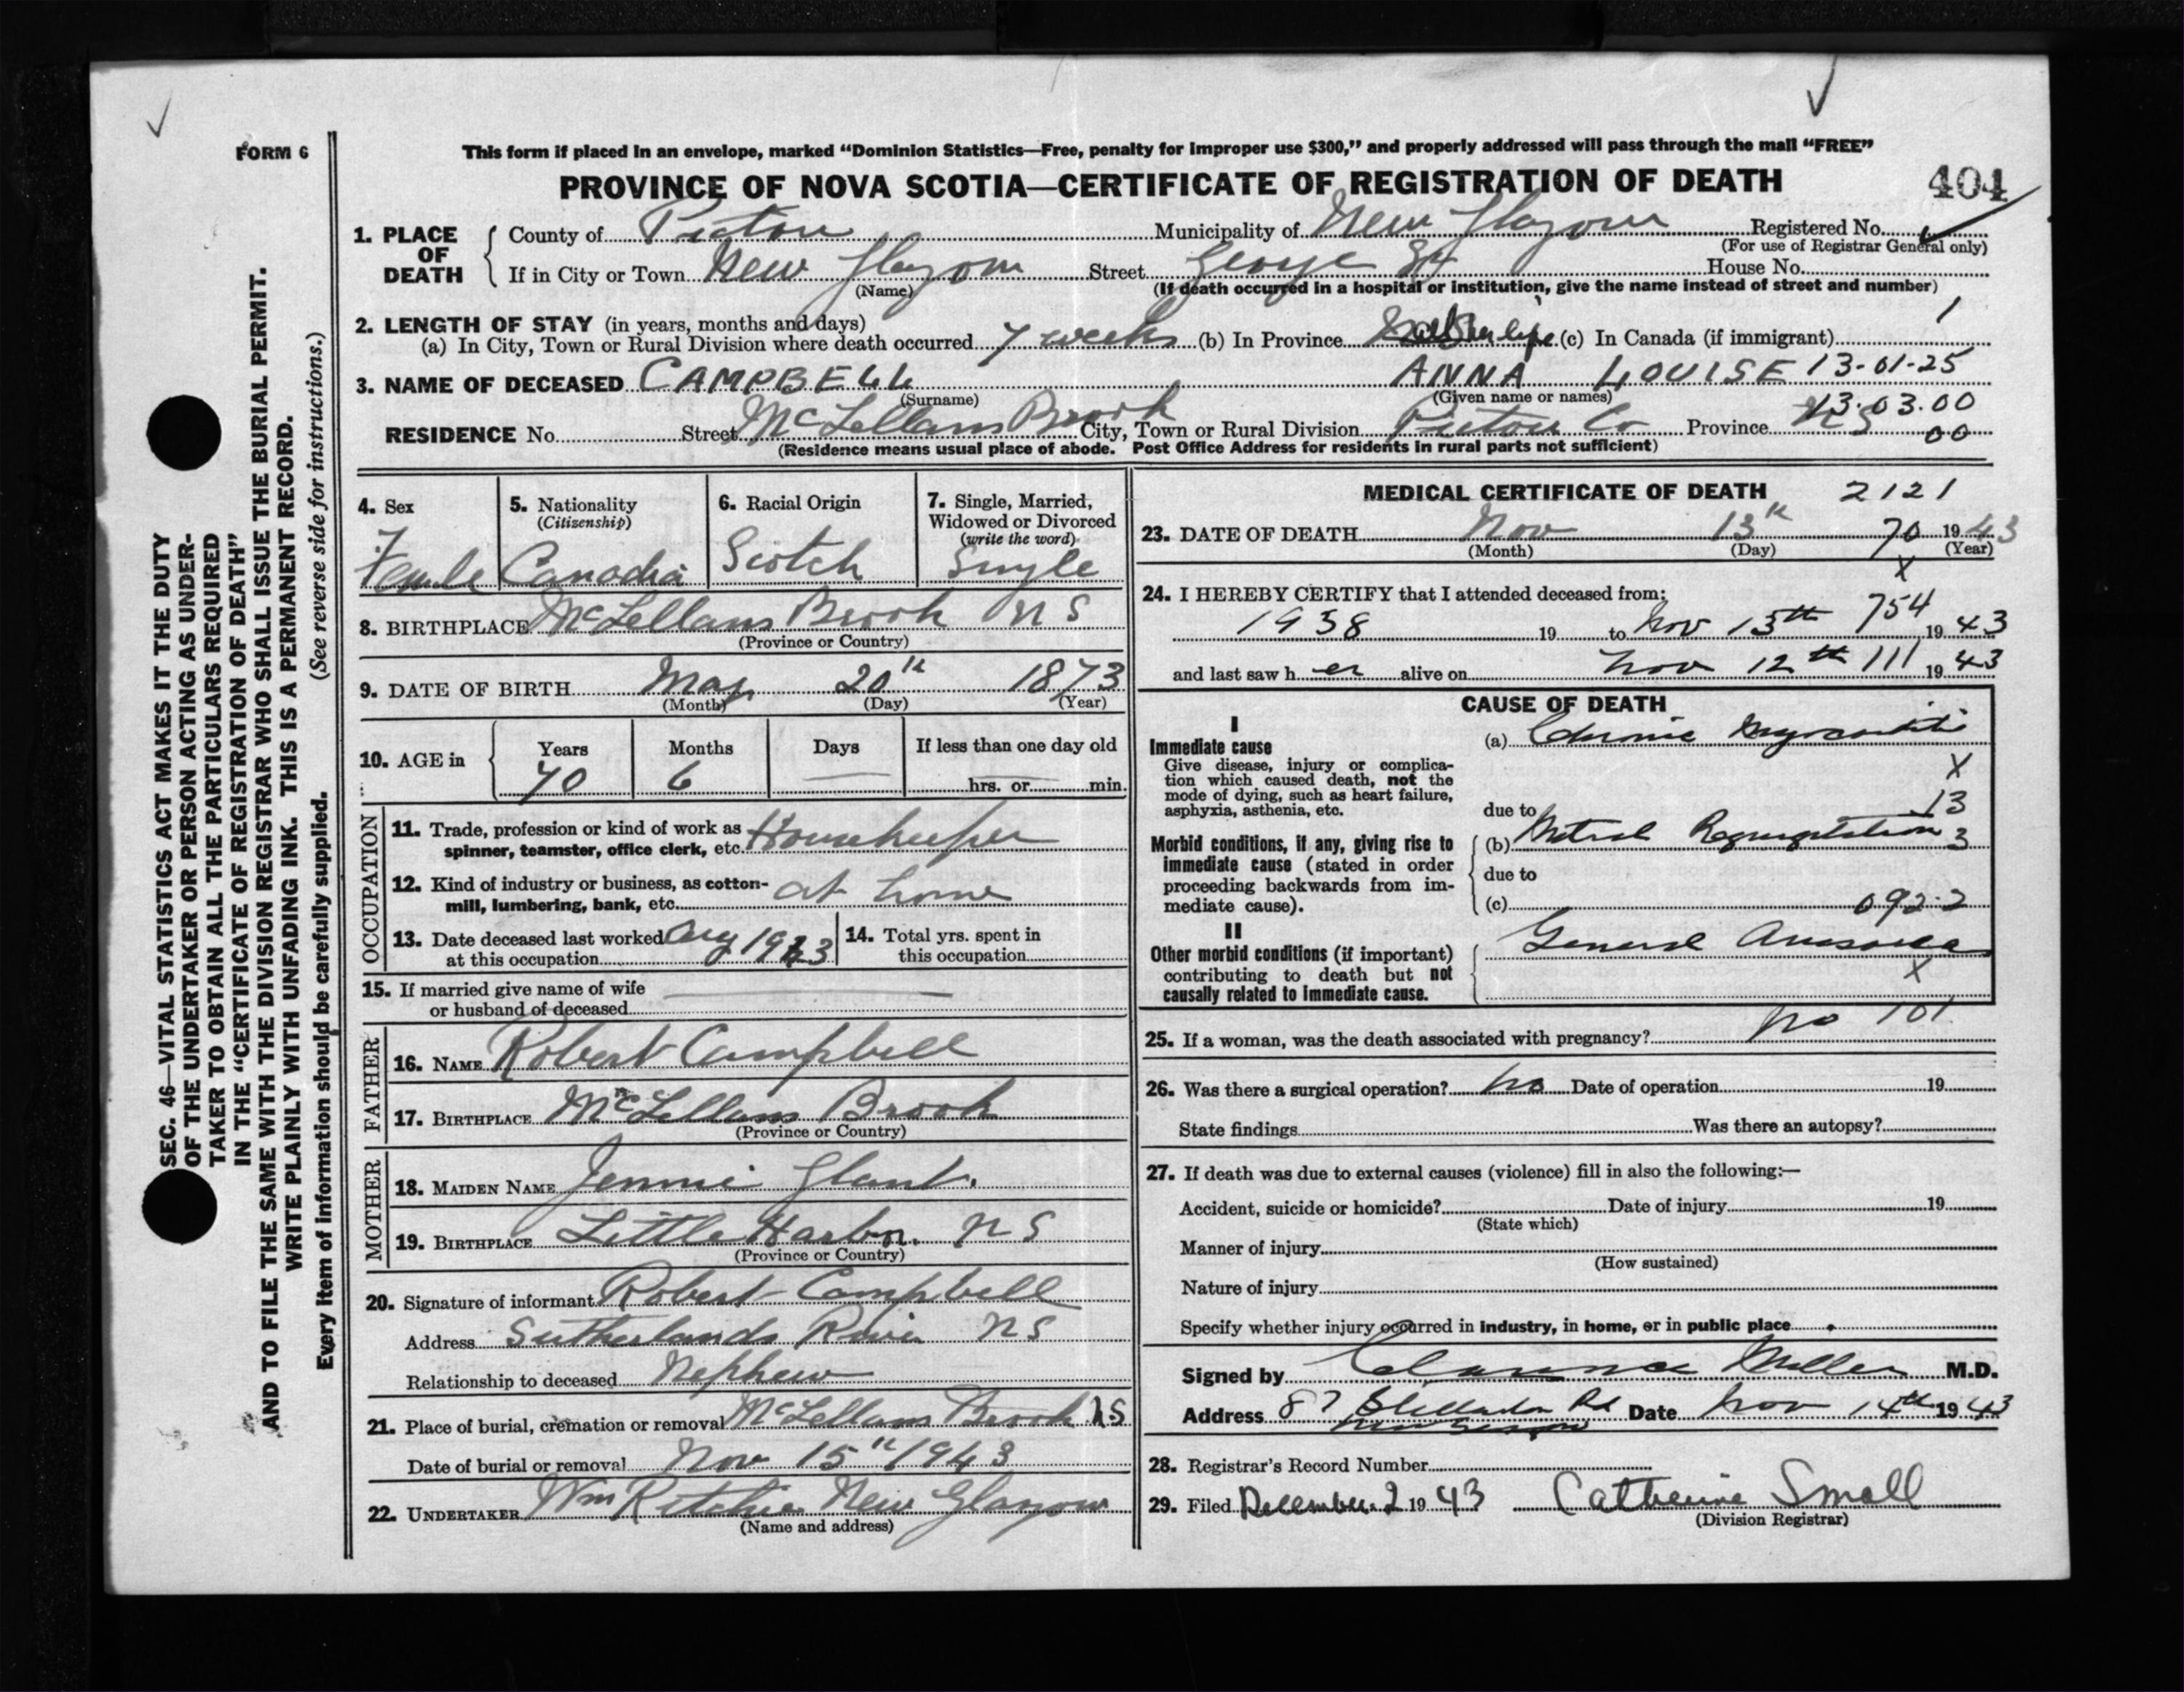 FORM 6
This form if placed in an envelope, marked “Dominion Statistics—Free, penalty for improper use $300,” and properly addressed will pass through the mail “FREE”
PROVINCE OF NOVA SCOTIA—CERTIFICATE OF REGISTRATION OF DEATH 404
1. PLACE OF DEATH
County of Pictou Municipality of New Glagow Registered No.
(For use of Registrar General only)
If in City or Town New Glagow Street George St House No.
(Name) (If death occurred in a hospital or institution, give the name instead of street and number)
2. LENGTH OF STAY (in years, months and days) 1
(a) In City, Town or Rural Division where death occurred 7 weeks (b) In Province life (c) In Canada (if immigrant)
3. NAME OF DECEASED CAMPBELL ANNA LOUISE 13-01-25
(Surname) (Given name or names) 13.03.00
RESIDENCE No. Street McLellans Brook City, Town or Rural Division Pictou Co Province NS 00
(Residence means usual place of abode. Post Office Address for residents in rural parts not sufficient)
4. Sex Female
5. Nationality (Citizenship) Canadia
6. Racial Origin Scotch
7. Single, Married, Widowed or Divorced (write the word) Single
8. BIRTHPLACE McLellans Brook NS
(Province or Country)
9. DATE OF BIRTH May 20th 1873
(Month) (Day) (Year)
10. AGE in Years Months Days If less than one day old
70 6 hrs. or min.
OCCUPATION
11. Trade, profession or kind of work as spinner, teamster, office clerk, etc. Housekeeper
12. Kind of industry or business, as cotton-mill, lumbering, bank, etc. at home
13. Date deceased last worked at this occupation Aug 1943
14. Total yrs. spent in this occupation
15. If married give name of wife
or husband of deceased
FATHER
16. NAME Robert Campbell
17. BIRTHPLACE McLellans Brook
(Province or Country)
MOTHER
18. MAIDEN NAME Jennie
19. BIRTHPLACE Little Harbor. NS
(Province or Country)
20. Signature of informant Robert Campbell
Address Sutherlands River NS
Relationship to deceased Nephew
21. Place of burial, cremation or removal McLellans Brook NS
Date of burial or removal Nov 15th 1943
22. UNDERTAKER Wm Ritchie New Glasgow
(Name and address)
MEDICAL CERTIFICATE OF DEATH 2121
23. DATE OF DEATH Nov 13th 70 1943
(Month) (Day) (Year)
X
24. I HEREBY CERTIFY that I attended deceased from: 754
1938 19 to Nov 13th 19 43
and last saw h er alive on Nov 12th 111 19 43
CAUSE OF DEATH
I
Immediate cause (a) Chronic Myocarditis
Give disease, injury or complication which caused death, not the mode of dying, such as heart failure, asphyxia, asthenia, etc. X
due to 13
Morbid conditions, if any, giving rise to immediate cause (stated in order proceeding backwards from immediate cause). (b) Mitral Regurgitation 3
due to
(c) 092.2
II
Other morbid conditions (if important) contributing to death but not causally related to immediate cause. General Anasarca
X
25. If a woman, was the death associated with pregnancy? no 101
26. Was there a surgical operation? no Date of operation 19
State findings Was there an autopsy?
27. If death was due to external causes (violence) fill in also the following:—
Accident, suicide or homicide? Date of injury 19
(State which)
Manner of injury
(How sustained)
Nature of injury
Specify whether injury occurred in industry, in home, or in public place
Signed by Clarence Miller M.D.
Address 87 Rd Date Nov 14th 19 43
28. Registrar's Record Number
29. Filed December 2 19 43 Catherine Small
(Division Registrar)
SEC. 46—VITAL STATISTICS ACT MAKES IT THE DUTY
OF THE UNDERTAKER OR PERSON ACTING AS UNDER-
TAKER TO OBTAIN ALL THE PARTICULARS REQUIRED
IN THE “CERTIFICATE OF REGISTRATION OF DEATH”
AND TO FILE THE SAME WITH THE DIVISION REGISTRAR WHO SHALL ISSUE THE BURIAL PERMIT.
WRITE PLAINLY WITH UNFADING INK. THIS IS A PERMANENT RECORD.
Every item of information should be carefully supplied. (See reverse side for instructions.)